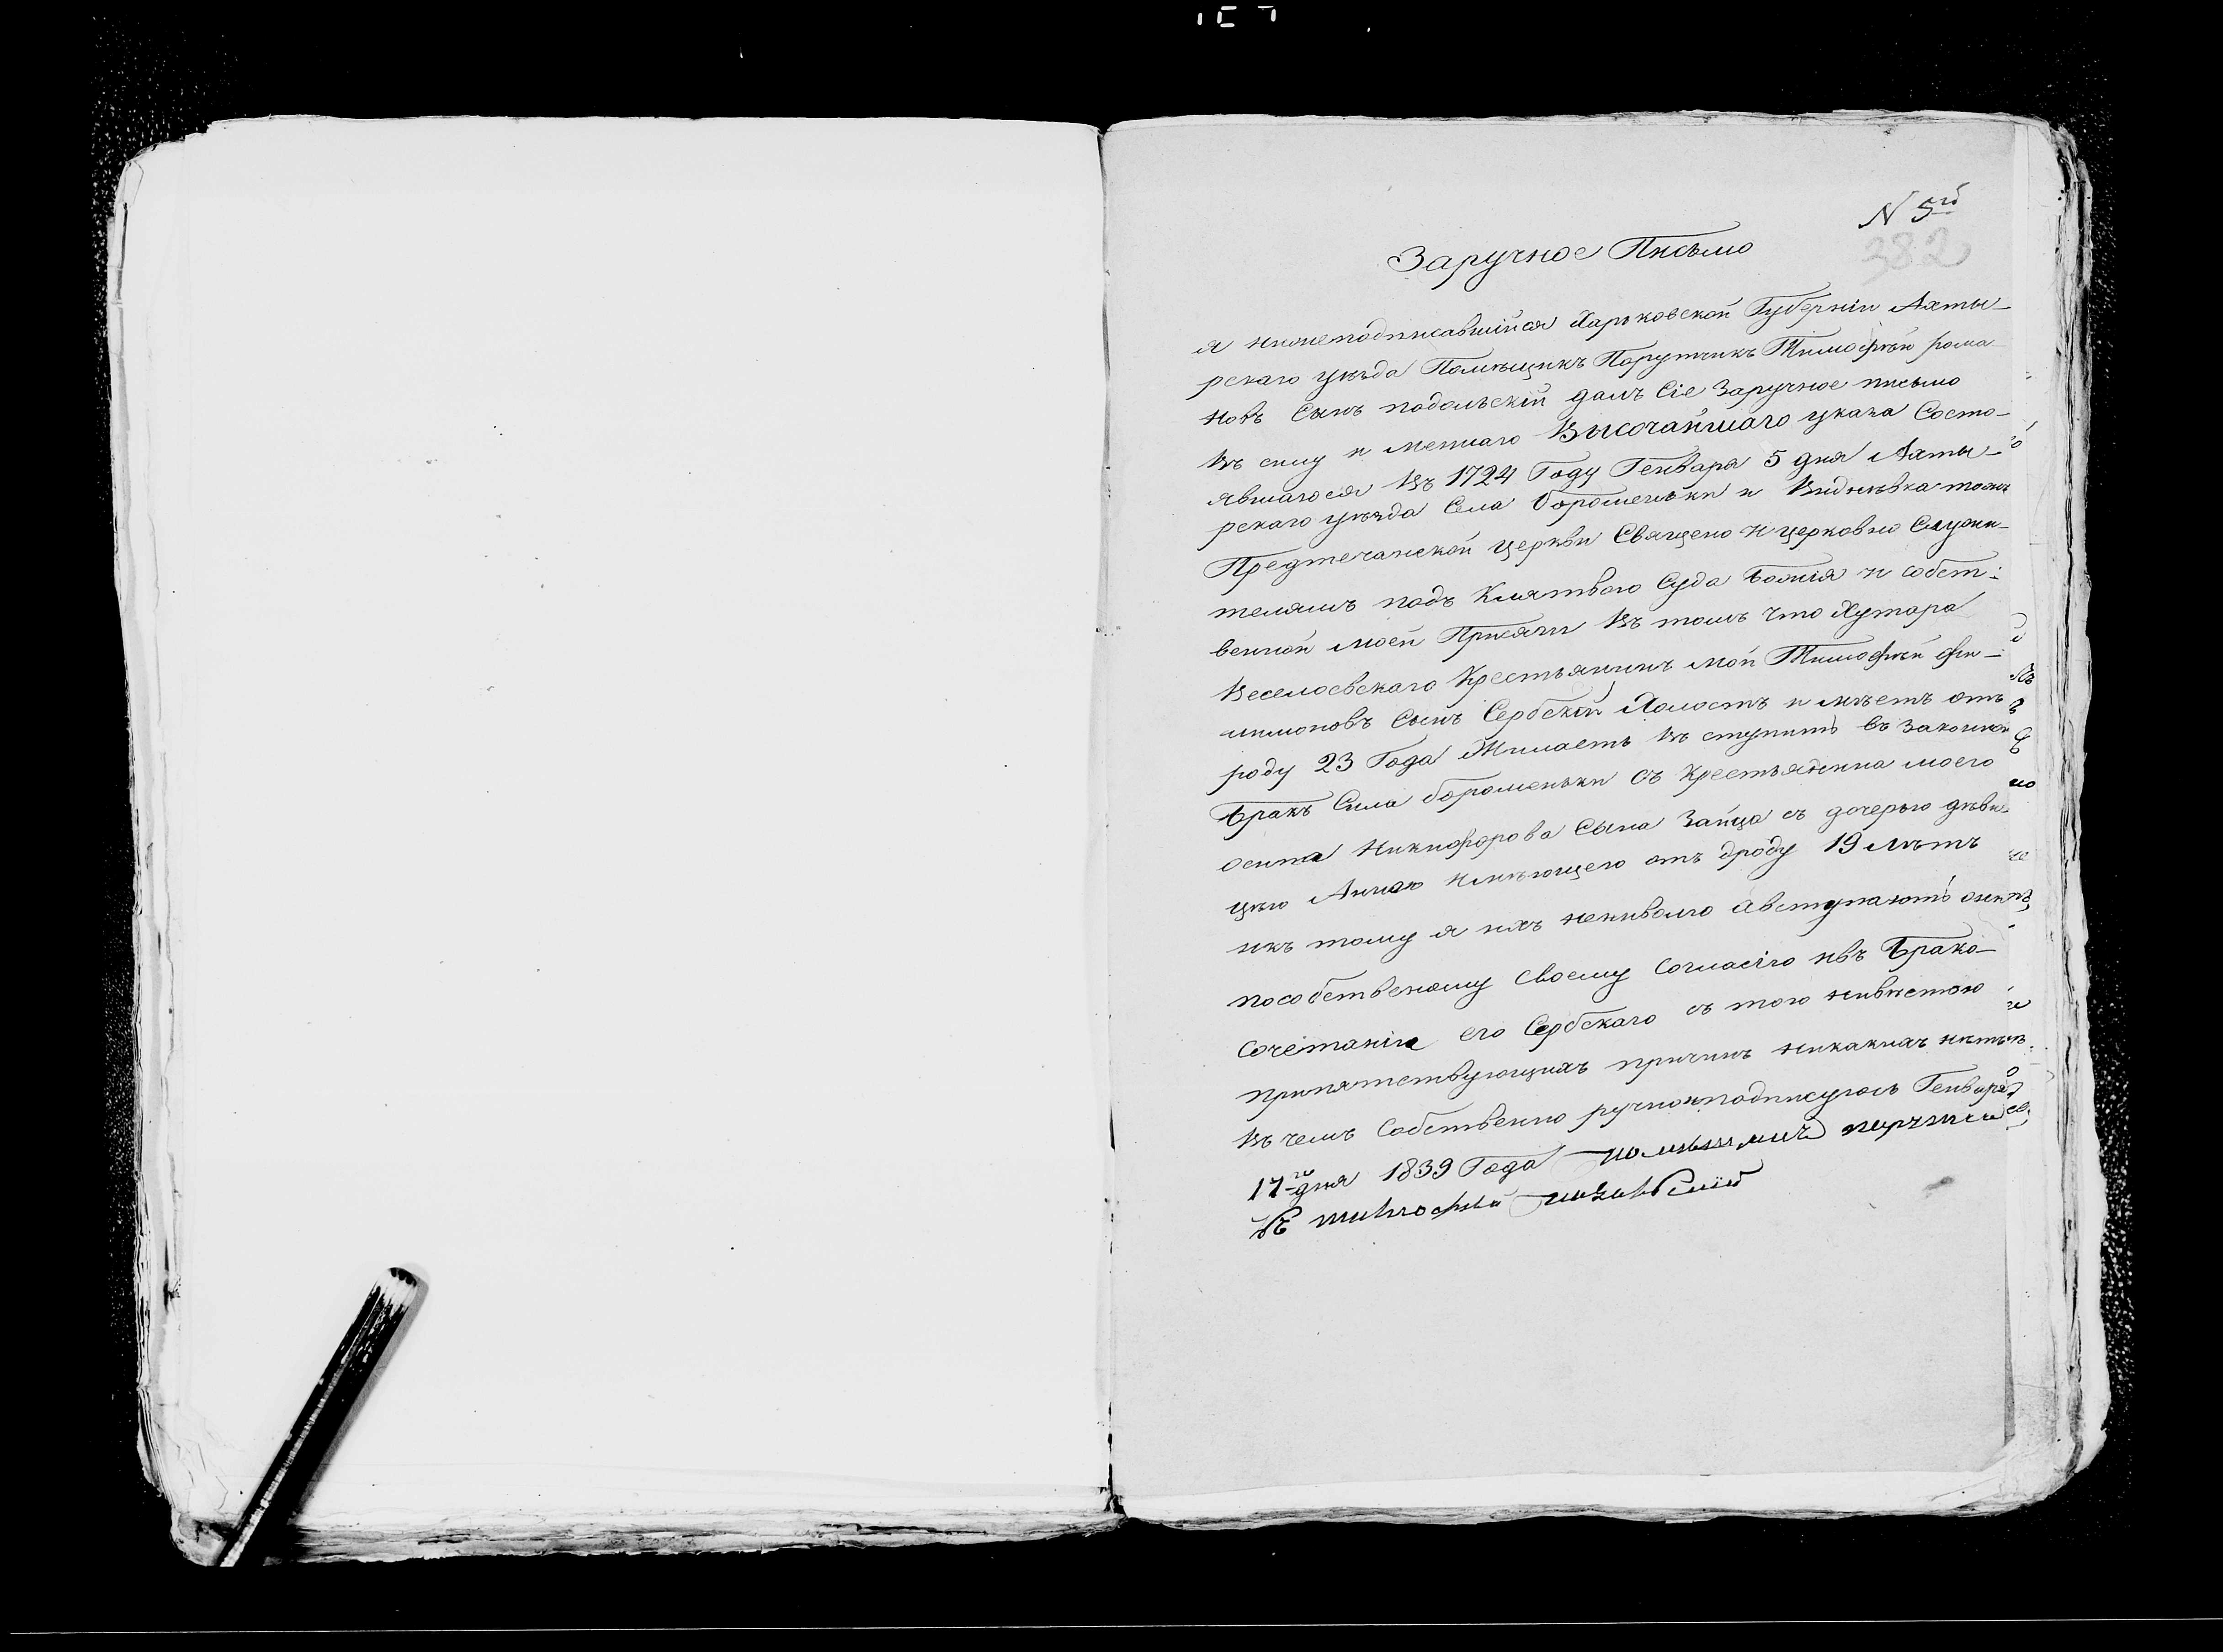 N 5й
382
Заручное Письмо
я нижеподписавшійся Харьковской Губерніи Ахты-
рскаго уѣзда Помѣщикъ Порутчикъ Тимофѣй рома
новъ Сынъ подольскій далъ Сіе Заручное письмо
въ силу и меннаго Высочайшаго указа Состо-
явшагося въ 1724 Году Генваря 5 дня Ахты-
рскаго уѣзда Села Боромельки и
Предтечанской церкви Священо и церковно Служи-
телямъ подъ Клятвою Суда Божія и собст-
венной моей Присяги въ томъ что Хутора
Веселоевскаго Крестьянинъ мой Тимофѣй фи-
лимоновъ Сынъ Сербскій Холостъ и мѣетъ отъ
роду 23 Года Жилаетъ въ ступить въ законной
Бракъ Сила боромельки съ Крестьянина моего
осипа Никифорова Сына Зайца съ дочерью дѣви
цею Анною Имѣющею отъ роду 19 лѣтъ
икъ тому я ихъ нениволю авступаютъ они
пособственому своему Согласію ивъ Брако-
сочетаніи его Сербскаго съ тою нивѣстою
припятствующихъ причинъ никакихъ нѣтъ
въ чемъ Собственно ручноиподписуюсь Генваря
17го дня 1839 Года помѣщикъ поручи
къ тимофѣй подольскій